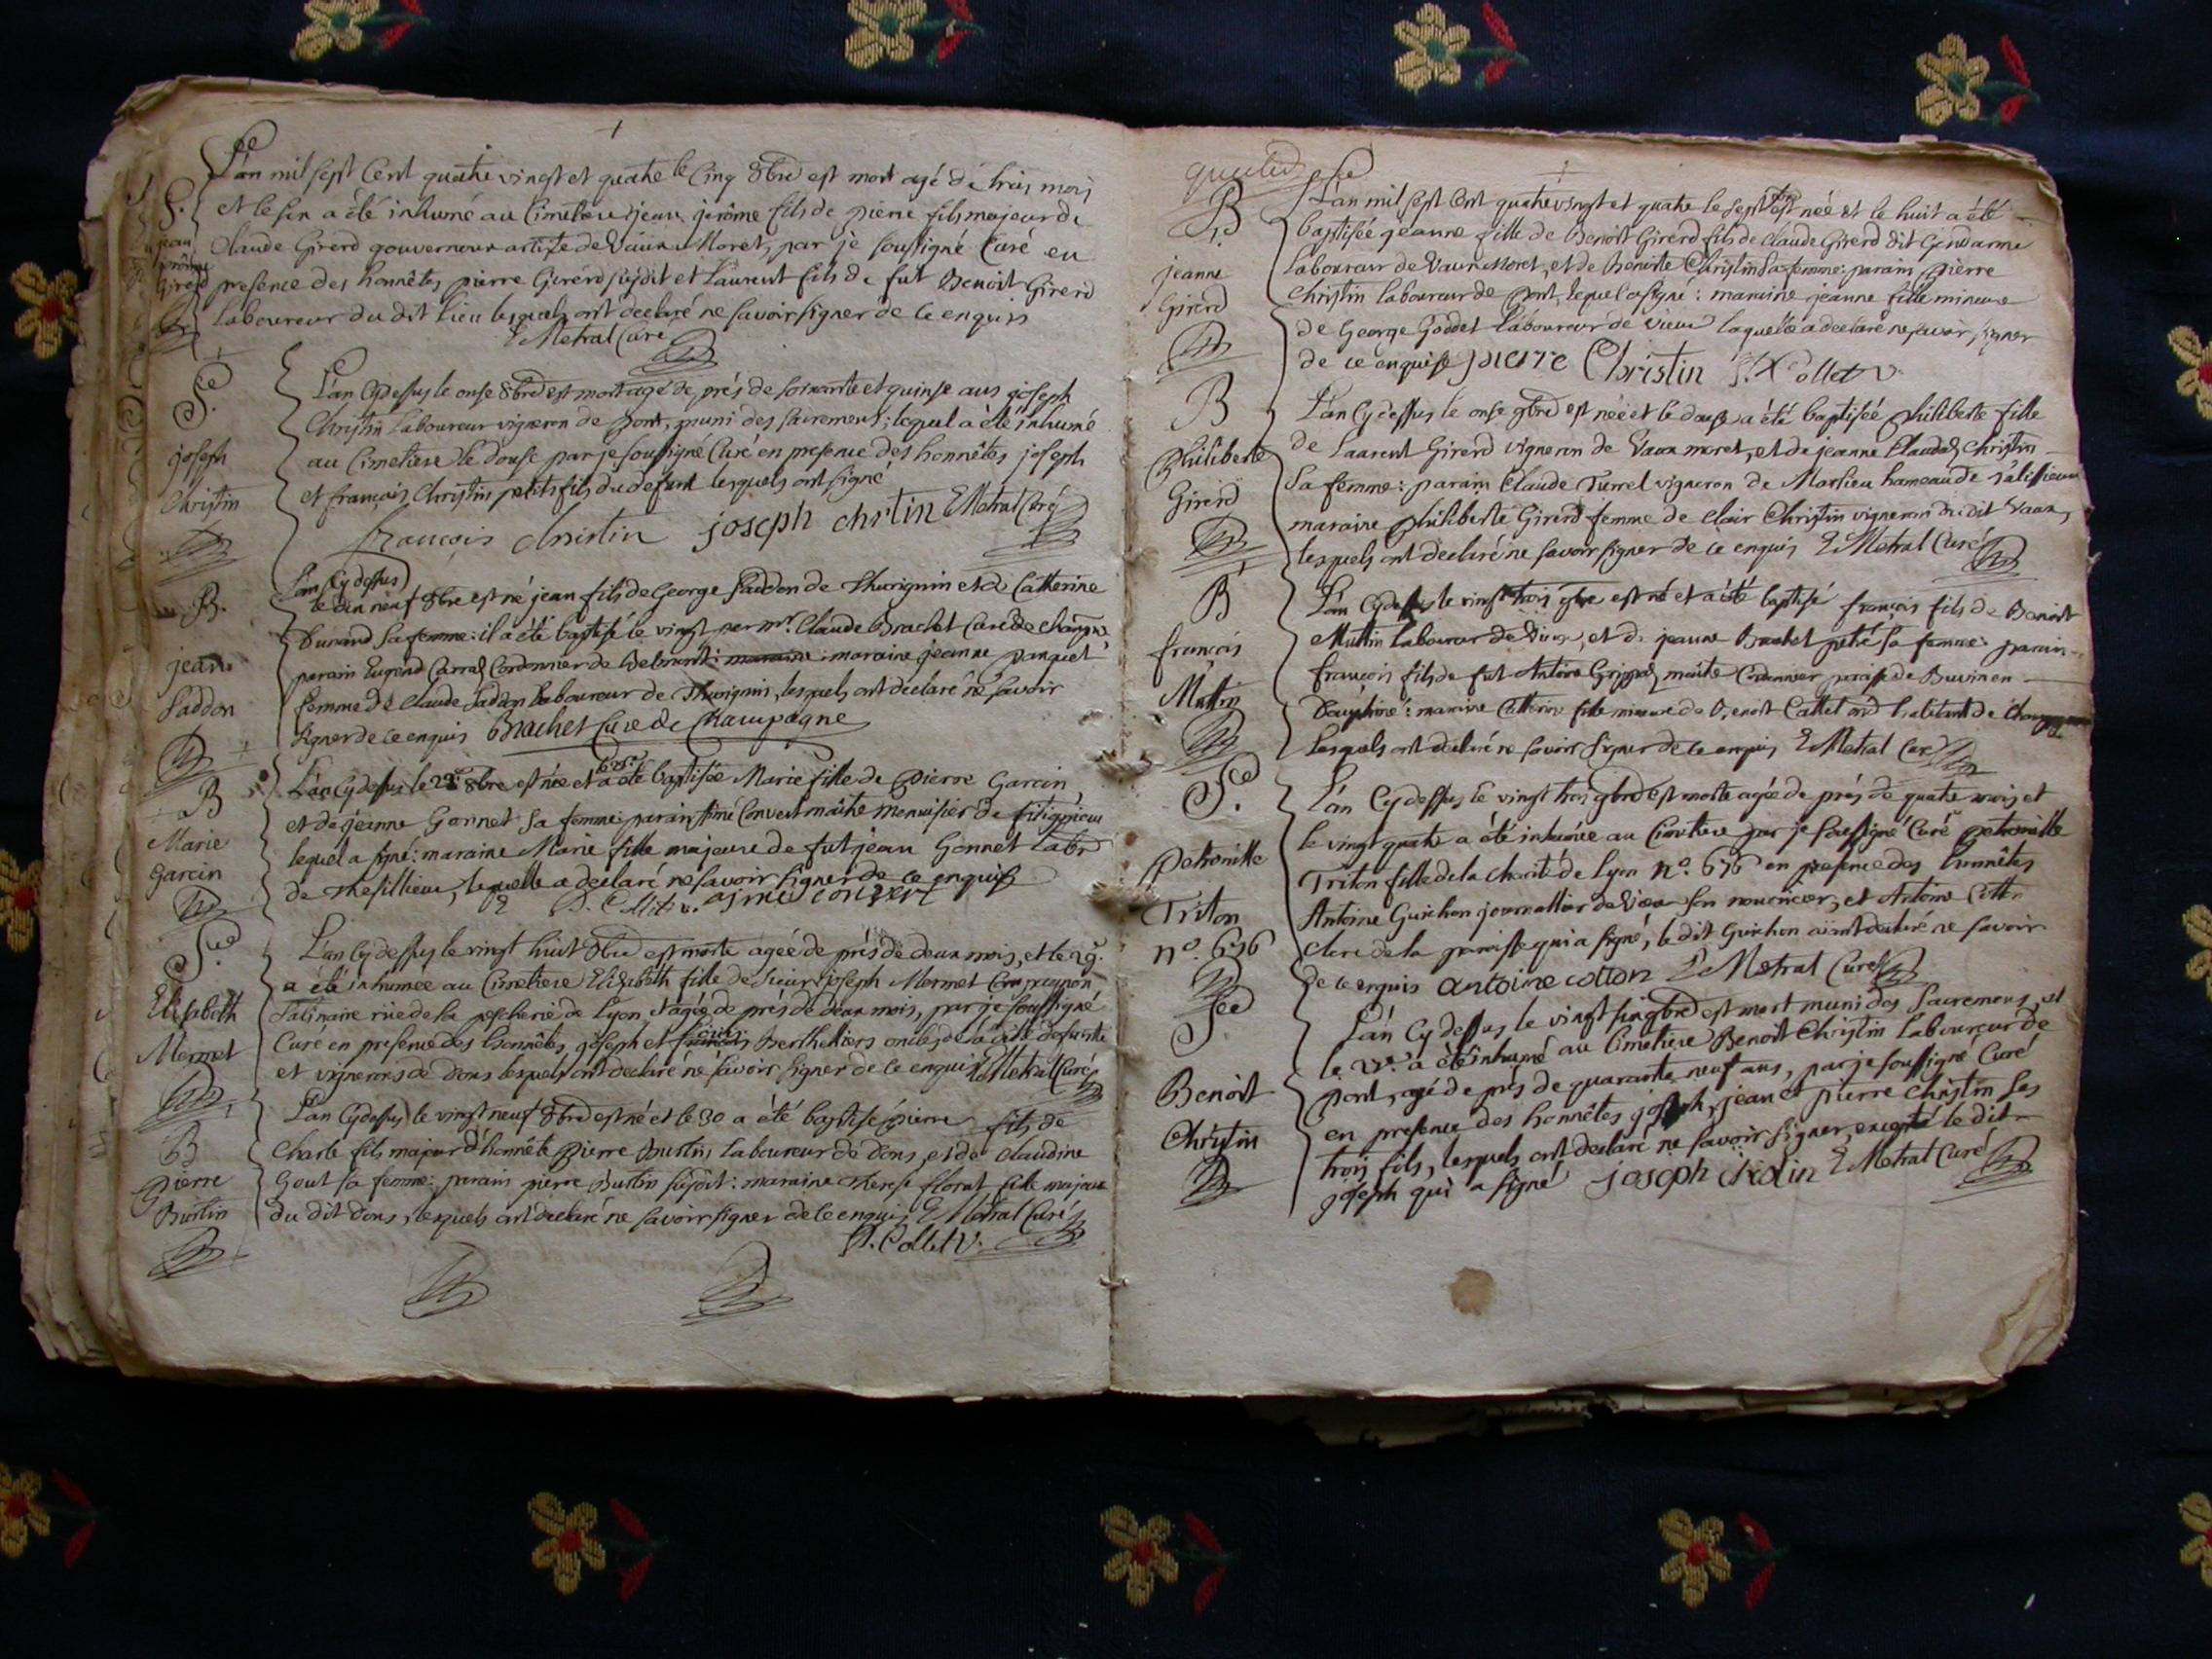 L'an mil sept Cent quatre vingt et quatre le Cinq 8bre est mort agé de trois mois
S.
et le six a été inhumé au Cimetiere jean jerôme fils de pierre fils majeur de
jean jerôme Girerd
Claude Girerd gouverneur de Vaux Moret, par je soussigné Curé en
presence des honnêtes pierre Girerd susdit et Laurent fils de fut Benoit Girerd
laboureur du dit lieu lesquels ont declaré ne savoir signer de ce enquis
Metral Curé
S.
joseph
Christin
L'an Cydessus le onse 8bre est mort agé de près de soixante et quinse ans joseph
Christin laboureur vigneron de pont, muni des sacremens; lequel a été inhumé
au Cimetiere le douse par je soussigné Curé en presence des honnêtes joseph
et françois Christin petits fils du defunt lesquels ont signé
françois christin joseph chrtin Metral Curé
B.
jean
Saddon
L'an Cydessus
le dix neuf 8bre est né jean fils de George Saddon de Thurignin et de Catherine
Durand sa femme: il a été baptisé le vingt par mr. Claude Brachet Curé de Champne
parain Eugend Carral Cordonnier de Belmont: maraine jeanne panquet
femme de Claude Saddon laboureur de Thurignin, lesquels ont declaré ne savoir
signer de ce enquis Brachet Curé de Champagne
B
Marie
Garcin
L'an Cydessus le 28 8bre est née et a été baptisée Marie fille de pierre Garcin
et de jeanne Gonnet sa femme: parain aimé Convert maitre menuisier de fitignieu
lequel a signé: maraine Marie fille majeure de fut jean Gonnet labr
de Thesillieu, laquelle a declaré ne savoir signer de ce enquise
P. Collet v. aimé convert
Se
Elisabeth
Mermet
L'an Cydessus le vingt huit 8bre est morte agée de près de deux mois, et le 29e
a été inhumée au Cimetiere Elisabeth fille de sieur joseph Mermet Compagnon
rue de la pescherie de Lyon agée de près de deux mois, par je soussigné
Curé en presence des honnêtes joseph et Berthelliers oncles de la dite defunte
et vignerons de dons lesquels ont declaré ne savoir signer de ce enquis Metral Curé
B
pierre
Burtin
L'an Cydessus le vingt neuf 8bre est né et le 30 a été baptisé pierre fils de
Charle fils majeur d'honnête pierre Burtin laboureur de dons, et de Claudine
Gout sa femme: parain pierre Burtin susdit: maraine therese florat fille majeure
du dit dons, lesquels ont declaré ne savoir signer de ce enquis Metral Curé
P. Collet V.
B
jeanne
Girerd
L'an mil sept Cent quatre vingt et quatre le sept est née et le huit a été
baptisée jeanne fille de Benoit Girerd fils de Claude Girerd dit Gendarme
laboureur de Vaux Moret, et de Benoite Christin sa femme: parain pierre
Christin laboureur de pont, lequel a signé: maraine jeanne fille mineure
de George Goddet laboureur de vieux laquelle a declaré ne savoir signer
de ce enquise pierre Christin P. Collet v.
B
Philiberte
Girerd
L'an Cydessus le onse 9bre est née et le douse a été baptisée philiberte fille
de Laurent Girerd vigneron de Vaux moret, et de jeanne Clauda Christin
sa femme: parain Claude Turrel vigneron de Massieu hameau de Talissieux
maraine philiberte Girerd femme de Clair Christin vigneron du dit Vaux,
lesquels ont declaré ne savoir signer de ce enquis Metral Curé
B
françois
Muttin
L'an Cydessus le vingt trois 9bre est né et a été baptisé françois fils de Benoit
Muttin laboureur de Vieux, et de jeanne Brachet sa femme: parain
françois fils de fut Antoine Grippat maitre Cordonnier paroisse de Buvin en
Dauphiné: maraine Catherine fille mineure de Benoit Cattet habitant de
lesquels ont declaré ne savoir signer de ce enquis Metral Curé
Se.
petronille
Triton
no. 676
L'an Cydessus le vingt trois 9bre est morte agée de près de quatre mois et
le vingt quatre a été inhumée au Cimetiere par je soussigné Curé petronille
Triton fille de la charité de Lyon no. 676 en presence des honnêtes
Antoine Guichon journallier de Vieux son nouricier, et Antoine Cotton
clerc de la paroisse qui a signé, le dit Guichon aiant declaré ne savoir
de ce enquis antoine cotton Metral Curé
S.
Benoit
Christin
L'an Cydessus le vingt 9bre est mort muni des sacremens, et
le a été inhumé au Cimetiere Benoit Christin laboureur de
pont, agé de près de quarante neuf ans, par je soussigné Curé
en presence des honnêtes joseph, jean et pierre Christin ses
trois fils, lesquels ont declaré ne savoir signer, excepté le dit
joseph qui a signé joseph Metral Curé